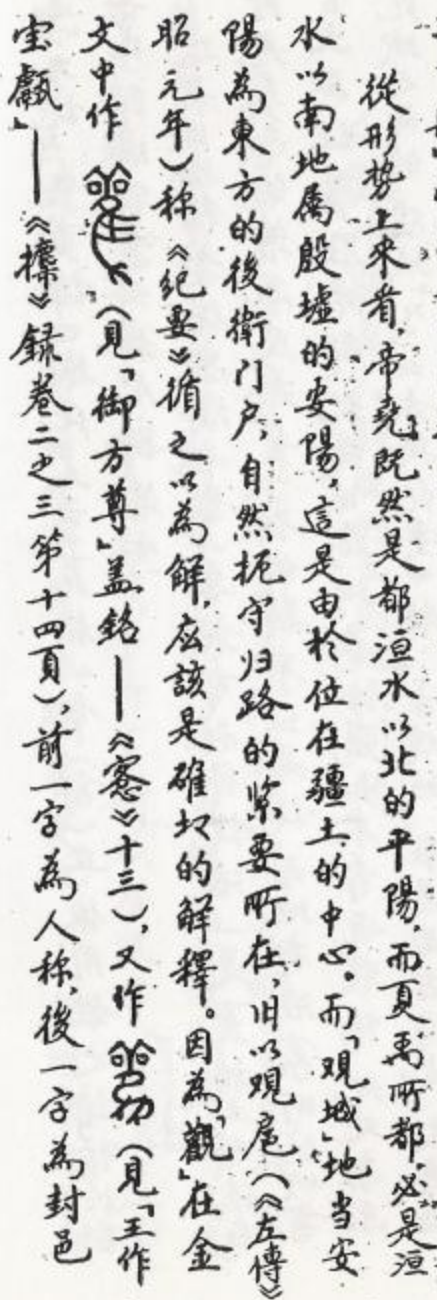 從形势上來看，帝堯既然是都洹水以北的平陽，而夏禹所都，必是洹
水以南地属殷墟的安陽，這是由於位在疆土的中心。而「观城」地当安
陽為東方的後衛门户，自然扼守归路的紧要所在，旧以观扈（《左傳》
昭元年）称《纪要》循之以為解，应该是確切的解釋。因為「觀」在金
文中作（見「御方尊」盖銘——《愙》十三），又作（見「王作
宝甗」——《攈》録卷二之三第十四頁），前一字為人称，後一字為封邑